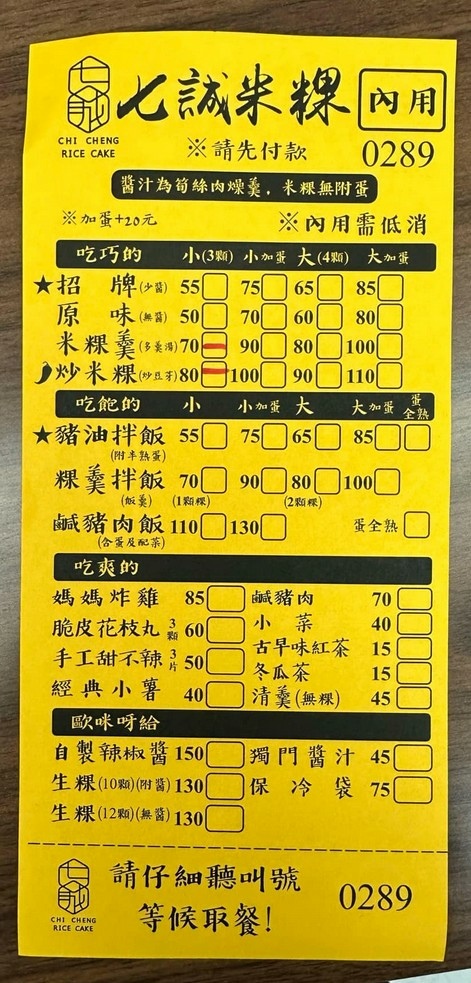 七誠
CHI CHENG
RICE CAKE
七誠米粿
內用
※請先付款
0289
醬汁為筍絲肉燥羹，米粿無附蛋
※加蛋+20元
※內用需低消
吃巧的 小(3顆) 小加蛋 大(4顆) 大加蛋
★招牌(少醬) 55 75 65 85
原味(無醬) 50 70 60 80
米粿羹(多羹湯) 70 90 80 100
炒米粿(炒豆芽) 80 100 90 110
吃飽的 小 小加蛋 大 大加蛋 蛋全熟
★豬油拌飯 55 75 65 85
(附半熟蛋)
粿羹拌飯 70 90 80 100
(飯羹) (1顆粿) (2顆粿)
鹹豬肉飯 110 130 蛋全熟
(含蛋及配菜)
吃爽的
媽媽炸雞 85 鹹豬肉 70
脆皮花枝丸 3顆 60 小菜 40
手工甜不辣 3片 50 古早味紅茶 15
冬瓜茶 15
經典小薯 40 清羹(無粿) 45
歐咪呀給
自製辣椒醬 150 獨門醬汁 45
生粿(10顆)(附醬) 130 保冷袋 75
生粿(12顆)(無醬) 130
七誠
CHI CHENG
RICE CAKE
請仔細聽叫號
等候取餐!
0289